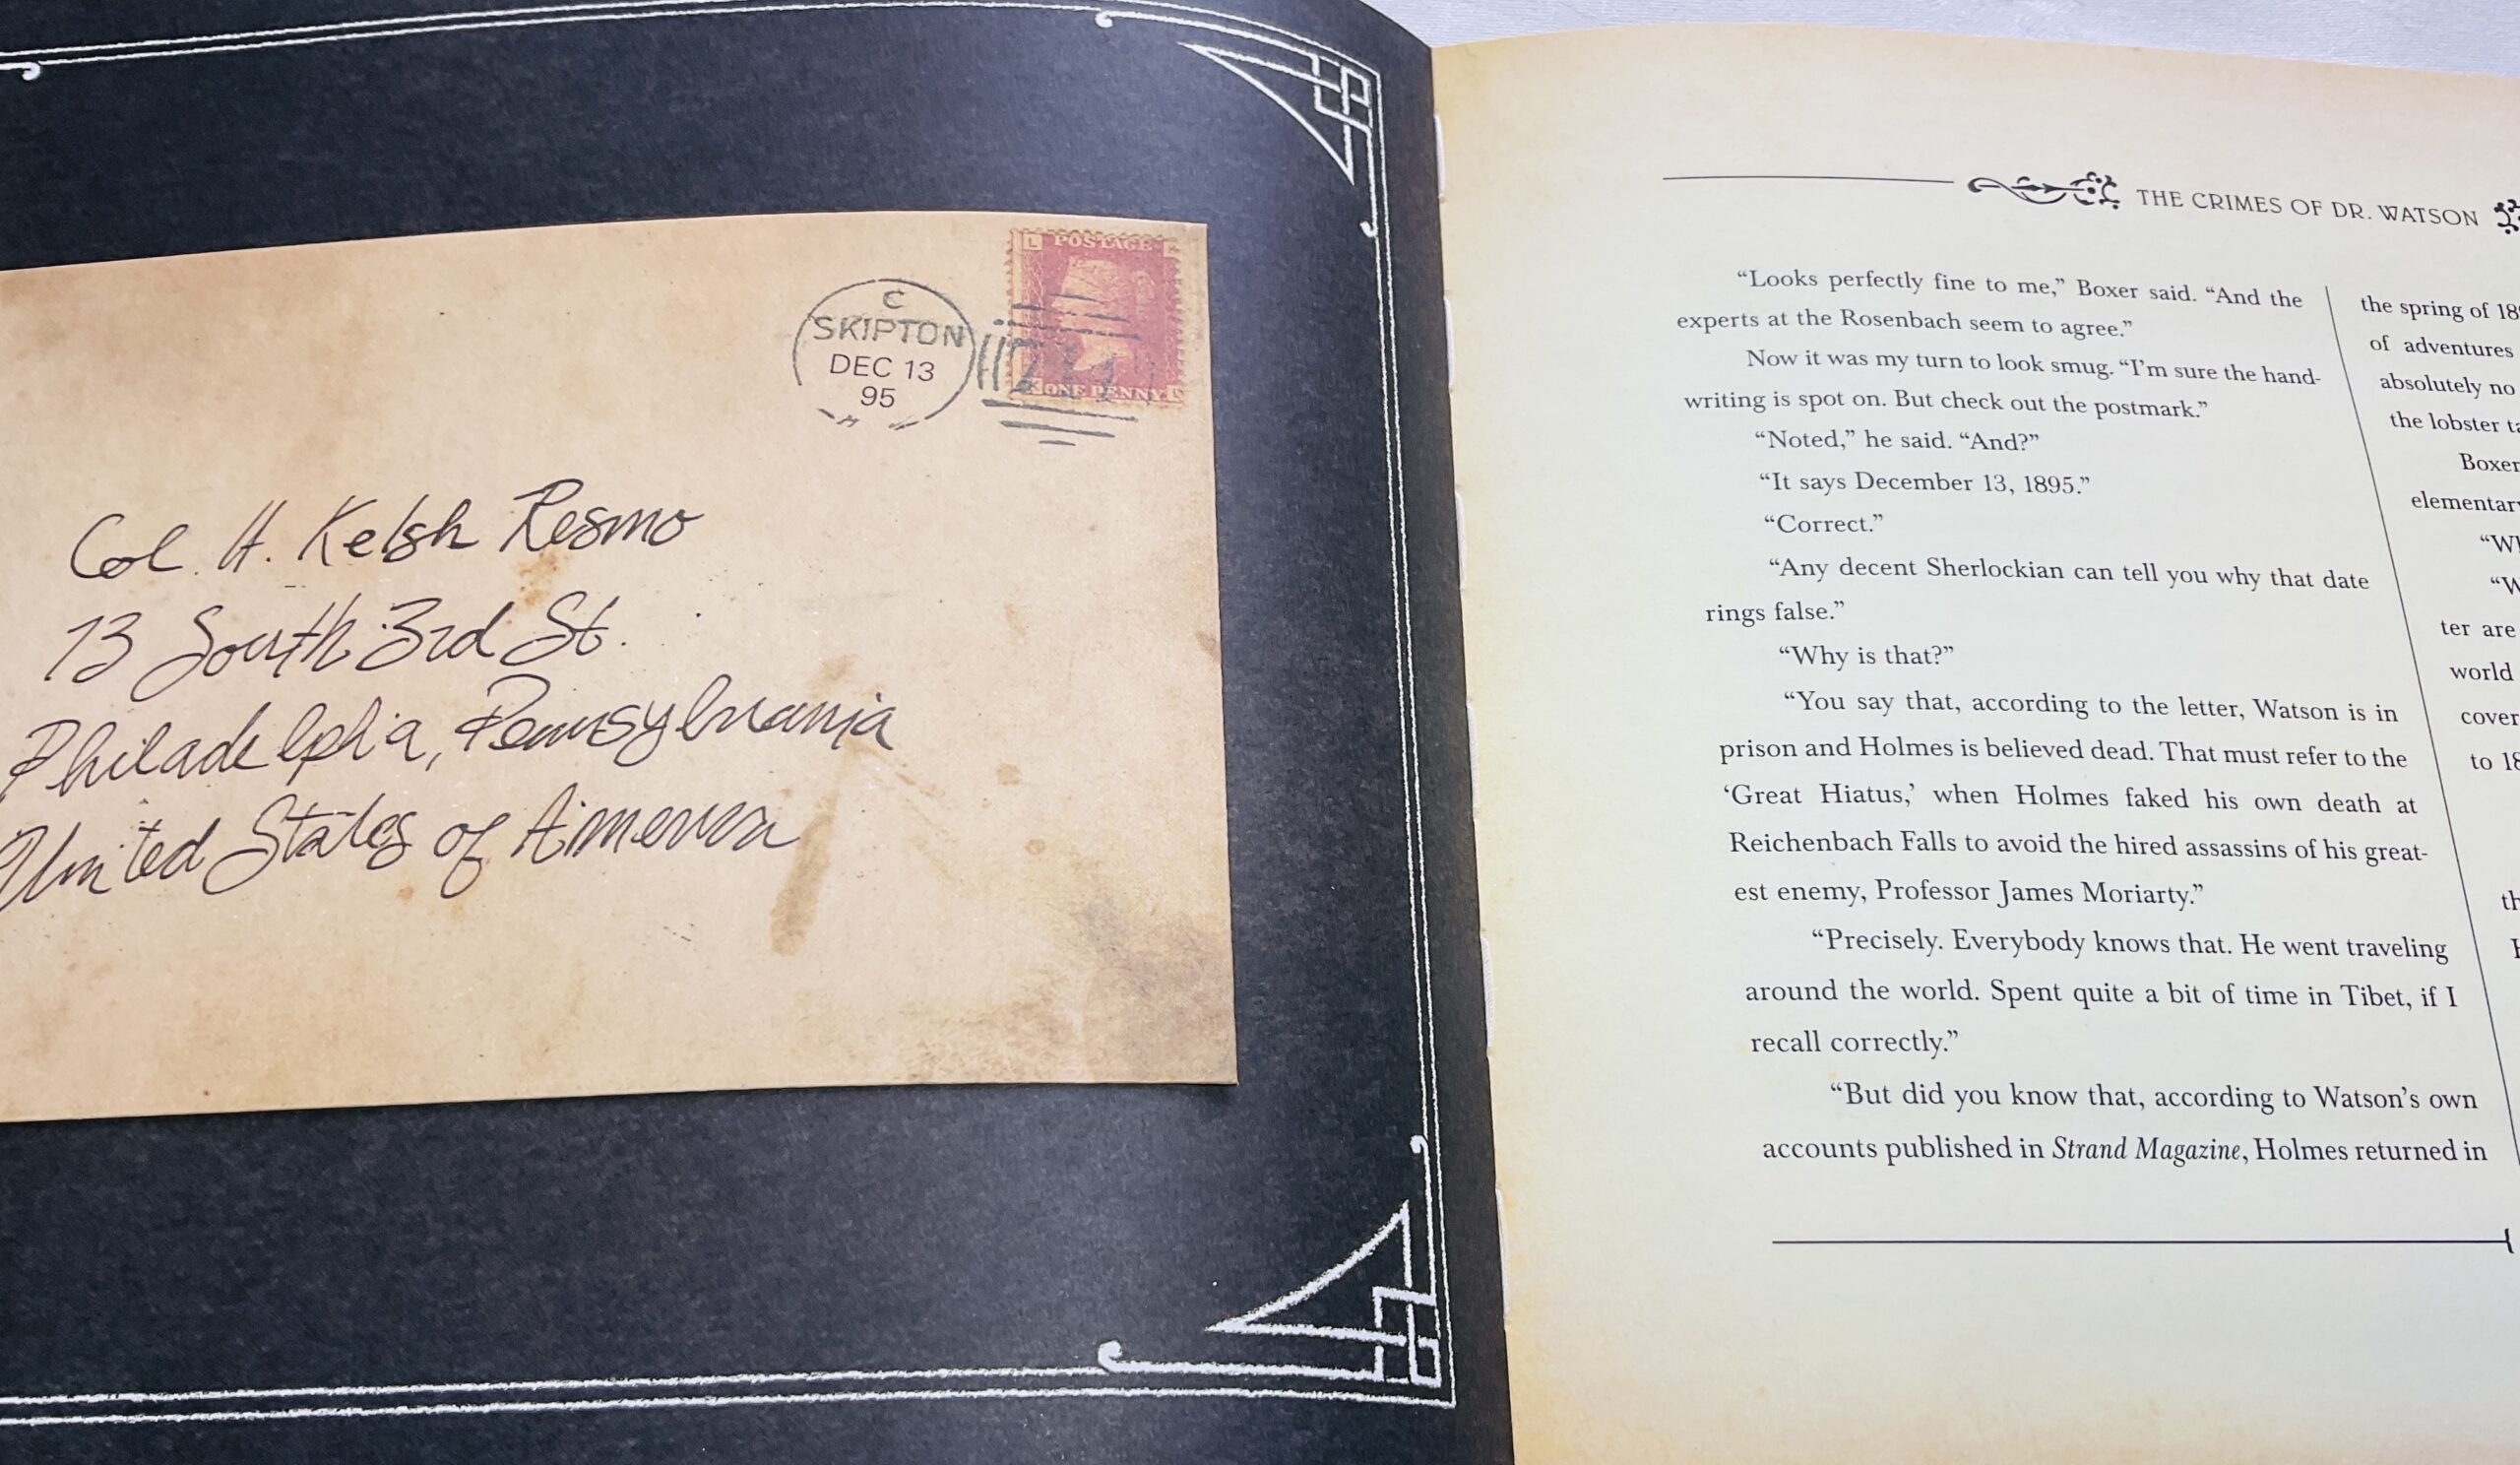 C
SKIPTON
DEC 13
95
POSTAGE
ONE PENNY
Col. H. Kelsh Resmo
13 South 3rd St.
Philadelphia, Pennsylvania
United States of America
THE CRIMES OF DR. WATSON
“Looks perfectly fine to me,” Boxer said. “And the
experts at the Rosenbach seem to agree.”
Now it was my turn to look smug. “I’m sure the hand-
writing is spot on. But check out the postmark.”
“Noted,” he said. “And?”
“It says December 13, 1895.”
“Correct.”
“Any decent Sherlockian can tell you why that date
rings false.”
“Why is that?”
“You say that, according to the letter, Watson is in
prison and Holmes is believed dead. That must refer to the
‘Great Hiatus,’ when Holmes faked his own death at
Reichenbach Falls to avoid the hired assassins of his great-
est enemy, Professor James Moriarty.”
“Precisely. Everybody knows that. He went traveling
around the world. Spent quite a bit of time in Tibet, if I
recall correctly.”
“But did you know that, according to Watson’s own
accounts published in Strand Magazine, Holmes returned in
the spring of
of adventures
absolutely no
the lobster
Boxer
ter are
world
cover
to